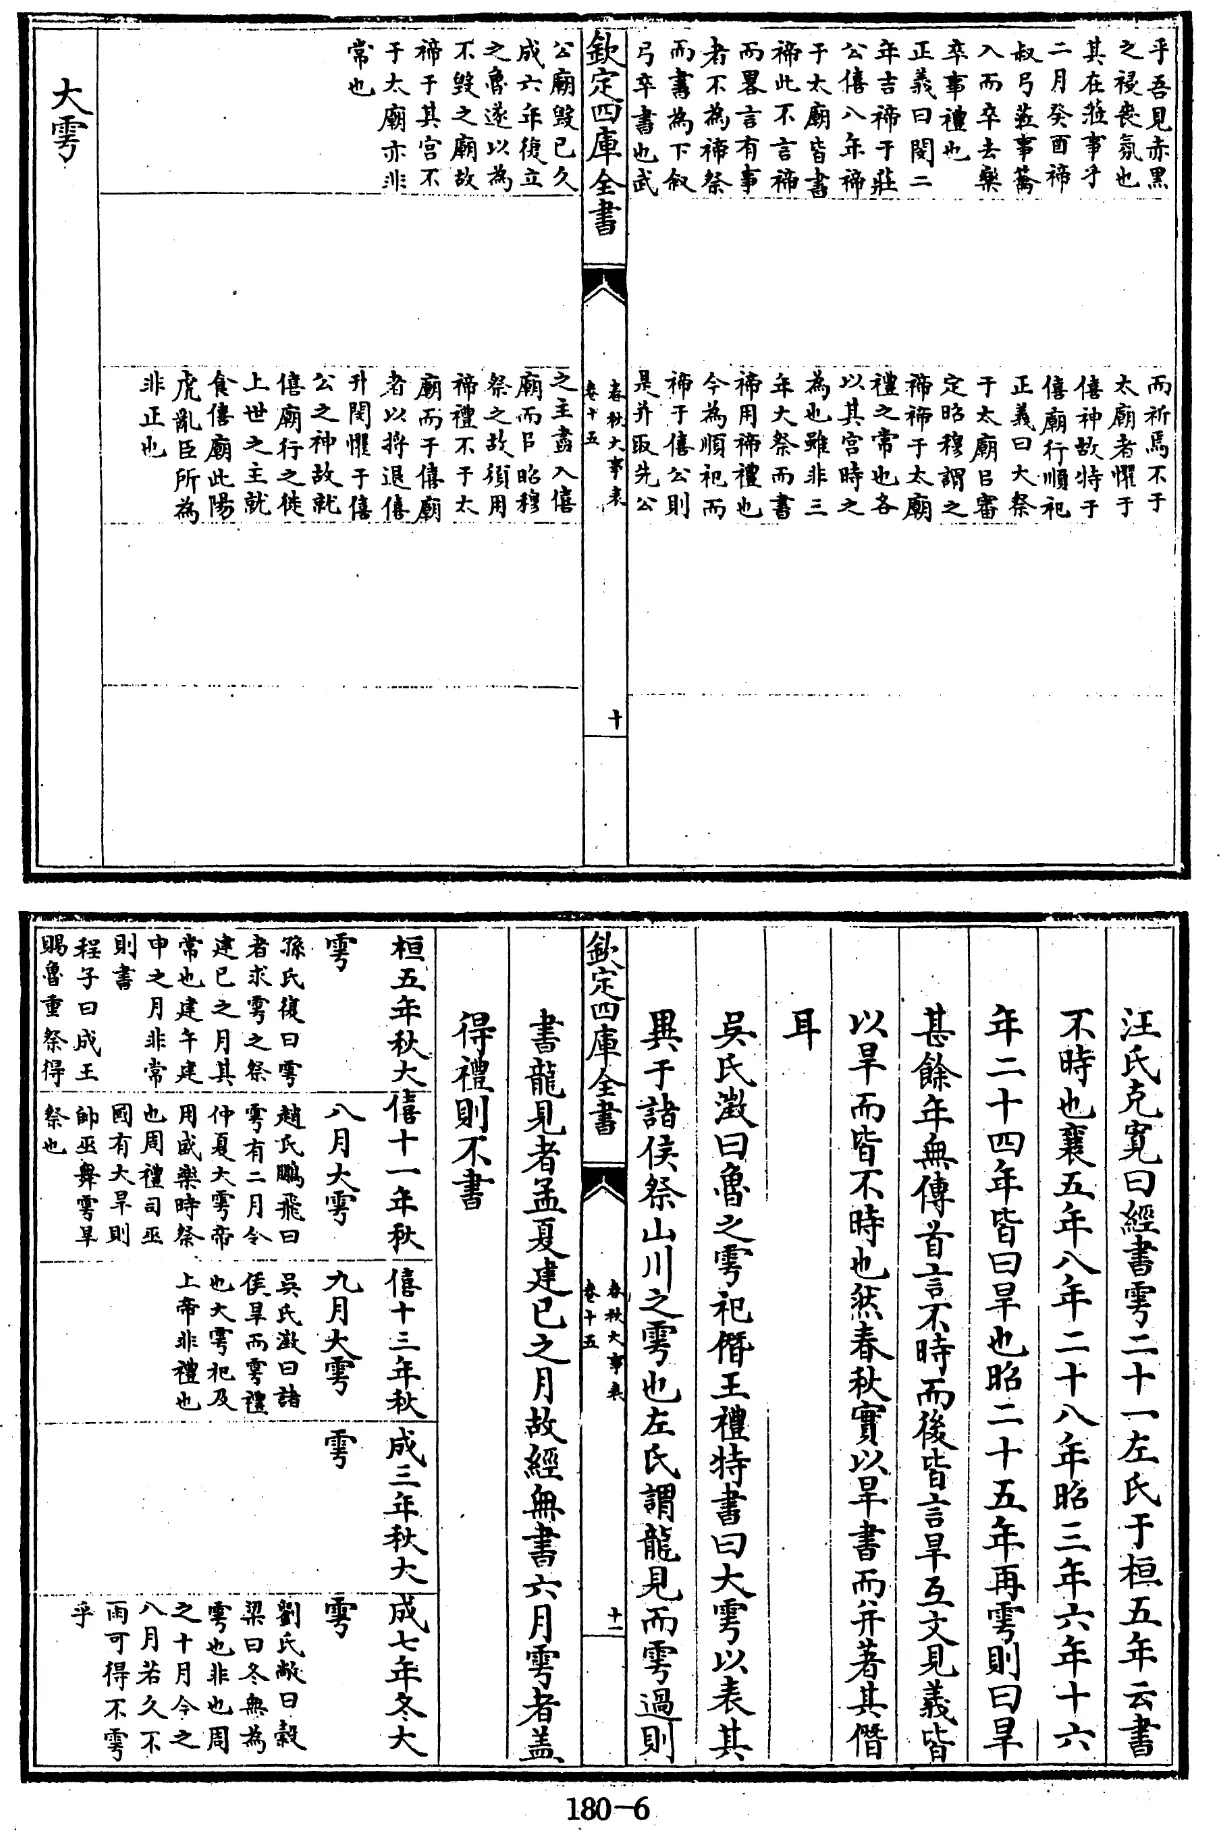 乎吾見赤黑
之祲喪氛也
其在蒞事乎
二月癸酉禘
叔弓蒞事籥
入而卒去樂
卒事禮也
正義曰閔二
年吉禘于莊
公僖八年禘
于太廟皆書
禘此不言禘
而畧言有事
者不為禘祭
而書為下叙
弓卒書也武
公廟毀已久
成六年復立
之魯遂以為
不毀之廟故
禘于其宫不
于太廟亦非
常也
而祈焉不于
太廟者懼于
僖神故特于
僖廟行順祀
正義曰大祭
于太廟㠯審
定昭穆謂之
禘禘于太廟
禮之常也各
以其宫時之
為也雖非三
年大祭而書
禘用禘禮也
今為順祀而
禘于僖公則
是并取先公
之主盡入僖
廟而㠯昭穆
祭之故須用
禘禮不于太
廟而于僖廟
者以將退僖
升閔懼于僖
公之神故就
僖廟行之徙
上世之主就
食僖廟此陽
虎亂臣所為
非正也
欽定四庫全書
春秋大事表
卷十五
十
大雩
汪氏克寛曰經書雩二十一左氏于桓五年云書
不時也襄五年八年二十八年昭三年六年十六
年二十四年皆曰旱也昭二十五年再雩則曰旱
甚餘年無傳首言不時而後皆言旱互文見義皆
以旱而皆不時也然春秋實以旱書而并著其僭
耳
吳氏澂曰魯之雩祀僭王禮特書曰大雩以表其
異于諸侯祭山川之雩也左氏謂龍見而雩過則
欽定四庫全書
春秋大事表
卷十五
十一
書龍見者孟夏建巳之月故經無書六月雩者盖
得禮則不書
桓五年秋大
雩
孫氏復曰雩
者求雩之祭
建巳之月其
常也建午建
申之月非常
則書
程子曰成王
賜魯重祭得
僖十一年秋
八月大雩
趙氏鵬飛曰
雩有二月令
仲夏大雩帝
用盛樂時祭
也周禮司巫
國有大旱則
帥巫舞雩旱
祭也
僖十三年秋
九月大雩
吳氏澂曰諸
侯旱而雩禮
也大雩祀及
上帝非禮也
成三年秋大
雩
成七年冬大
雩
劉氏敞曰穀
梁曰冬無為
雩也非也周
之十月今之
八月若久不
雨可得不雩
乎
180-6